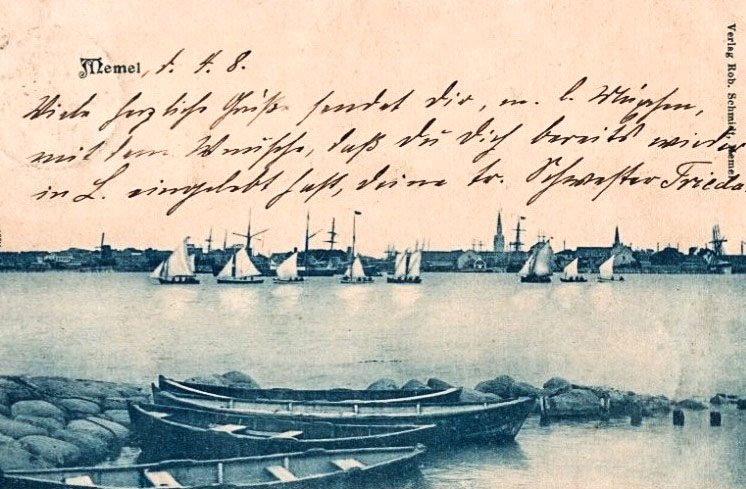 Memel, d. 4. 8.
Viele herzliche Grüße sendet Dir, m. l. Müpschen,
mit dem Wunsche, daß Du Dich bereits wieder
in L. eingelebt hast, deine tr. Schwester Frieda.
Verlag Rob. Schmidt, Memel